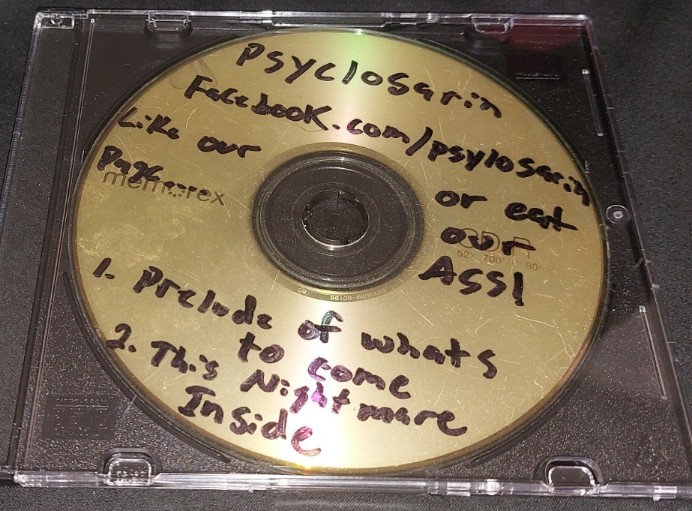 Psyclosarin
Facebook.com/psylosarin
Like our
Page....
or eat
our
ASS!
memorex
CD-R
52x 700 80
1. Prelude of whats
to come
2. This Nightmare
Inside